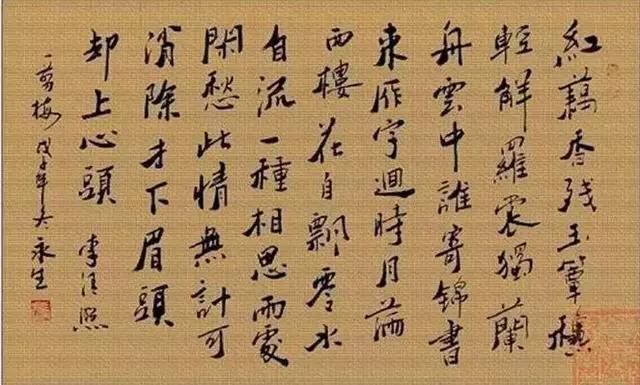 紅藕香残玉簟穐
輕解羅裳獨蘭
舟雲中誰寄錦書
来雁字迴時月滿
西樓花自飄零水
自流一種相思兩處
閑愁此情無計可
消除才下眉頭
却上心頭 李清照
一剪梅 戊子年 永生